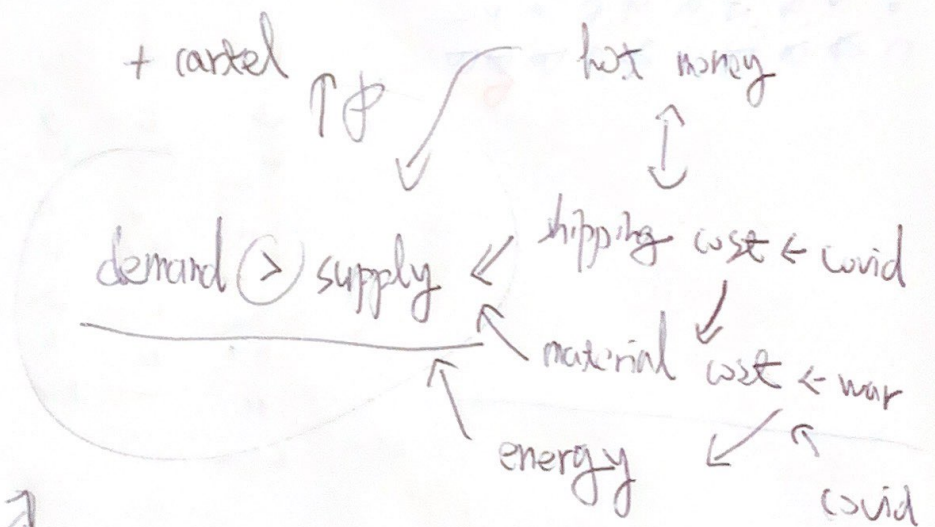 + cartel
hot money
demand > supply
shipping cost ← covid
material cost ← war
energy
covid